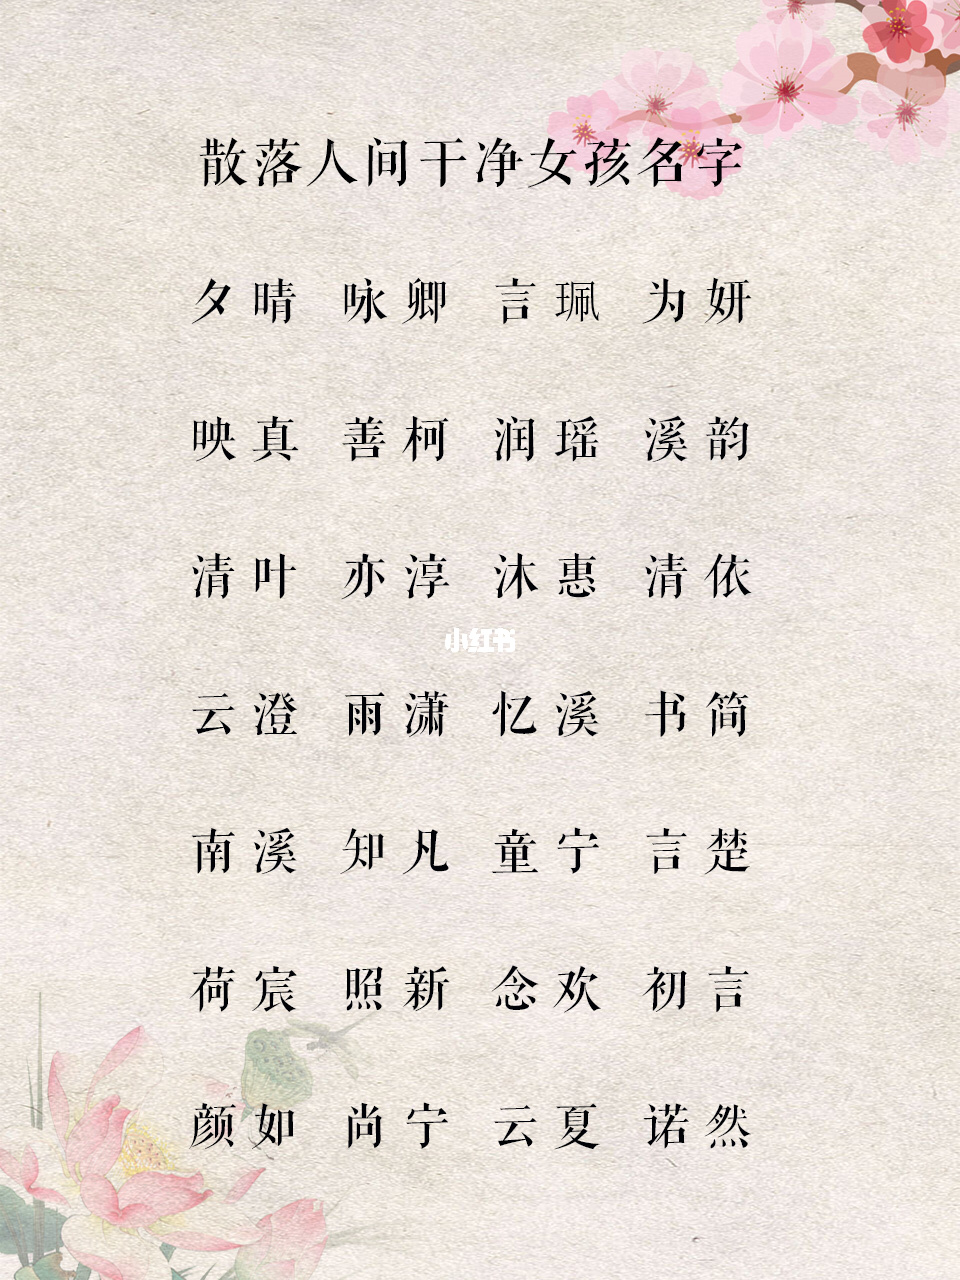 散落人间干净女孩名字
夕晴 咏卿 言珮 为妍
映真 善柯 润瑶 溪韵
清叶 亦淳 沐惠 清依
小红书
云澄 雨潇 忆溪 书简
南溪 知凡 童宁 言楚
荷宸 照新 念欢 初言
颜如 尚宁 云夏 诺然